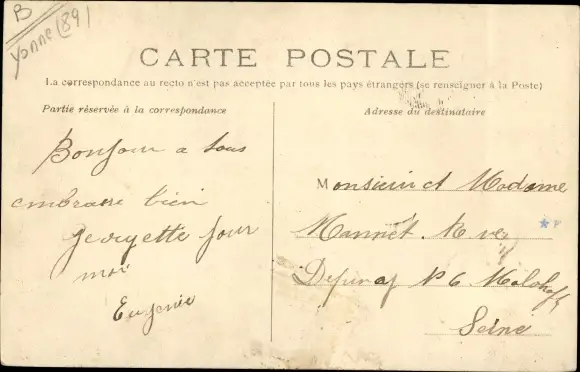 B
Yonne (89)
CARTE POSTALE
La correspondance au recto n'est pas acceptée par tous les pays étrangers (se renseigner à la Poste)
Partie réservée à la correspondance
Adresse du destinataire
Bonjour a tous
embrasse bien
Georgette pour
moi
Eugenie
Monsieur et Madame
Rue
N 6 Malakoff
Seine